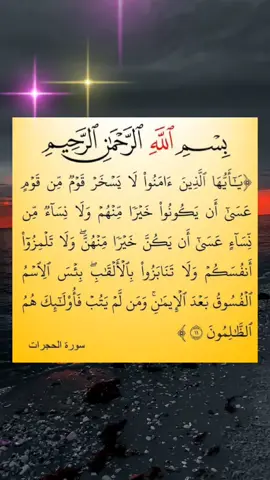 بِسْمِ ٱللَّهِ ٱلرَّحْمَٰنِ ٱلرَّحِيمِ
﴿يَـٰٓأَيُّهَا ٱلَّذِينَ ءَامَنُوا۟ لَا يَسْخَرْ قَوْمٌ مِّن قَوْمٍ
عَسَىٰٓ أَن يَكُونُوا۟ خَيْرًا مِّنْهُمْ وَلَا نِسَآءٌ مِّن
نِّسَآءٍ عَسَىٰٓ أَن يَكُنَّ خَيْرًا مِّنْهُنَّ ۖ وَلَا تَلْمِزُوٓا۟
أَنفُسَكُمْ وَلَا تَنَابَزُوا۟ بِٱلْأَلْقَـٰبِ ۖ بِئْسَ ٱلِٱسْمُ
ٱلْفُسُوقُ بَعْدَ ٱلْإِيمَـٰنِ ۚ وَمَن لَّمْ يَتُبْ فَأُو۟لَـٰٓئِكَ هُمُ
ٱلظَّـٰلِمُونَ ١١﴾
سورة الحجرات